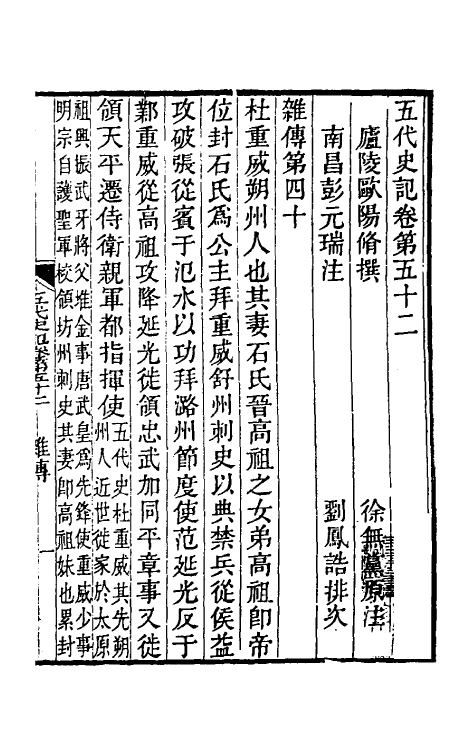 五代史記卷第五十二
廬陵歐陽脩撰
徐無黨原注
南昌彭元瑞注
劉鳳誥排次
雜傳第四十
杜重威朔州人也其妻石氏晉高祖之女弟高祖卽帝
位封石氏爲公主拜重威舒州刺史以典禁兵從侯益
攻破張從賓于汜水以功拜潞州節度使范延光反于
鄴重威從高祖攻降延光徙領忠武加同平章事又徙
領天平遷侍衛親軍都指揮使
五代史杜重威其先朔
州人近世徙家於太原
祖興振武牙將父堆金事唐武皇爲先鋒使重威少事
明宗自護聖軍校領坊州刺史其妻卽高祖妹也累封
五代史記卷第五十二 雜傳 一